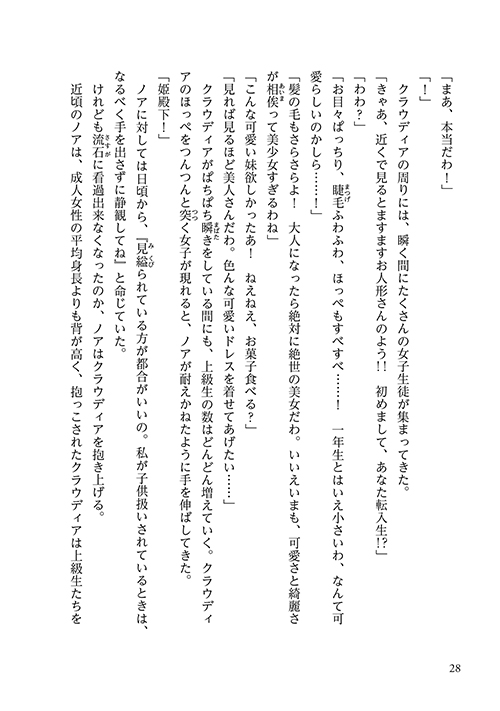 「まあ、本当だわ！」
「！」
　クラウディアの周りには、瞬く間にたくさんの女子生徒が集まってきた。
「きゃあ、近くで見るとますますお人形さんのよう!!　初めまして、あなた転入生!?」
「わわ？」
「お目々ぱっちり、睫毛ふわふわ、ほっぺもすべすべ……！　一年生とはいえ小さいわ、なんて可
愛らしいのかしら……！」
「髪の毛もさらさらよ！　大人になったら絶対に絶世の美女だわ。いいえいまも、可愛さと綺麗さ
が相俟って美少女すぎるわね」
「こんな可愛い妹欲しかったあ！　ねえねえ、お菓子食べる？」
「見れば見るほど美人さんだわ。色んな可愛いドレスを着せてあげたい……」
　クラウディアがぱちぱち瞬きをしている間にも、上級生の数はどんどん増えていく。クラウディ
アのほっぺをつんつんと突く女子が現れると、ノアが耐えかねたように手を伸ばしてきた。
「姫殿下！」
　ノアに対しては日頃から、『見縊られている方が都合がいいの。私が子供扱いされているときは、
なるべく手を出さずに静観してね』と命じていた。
　けれども流石に看過出来なくなったのか、ノアはクラウディアを抱き上げる。
　近頃のノアは、成人女性の平均身長よりも背が高く、抱っこされたクラウディアは上級生たちを
28